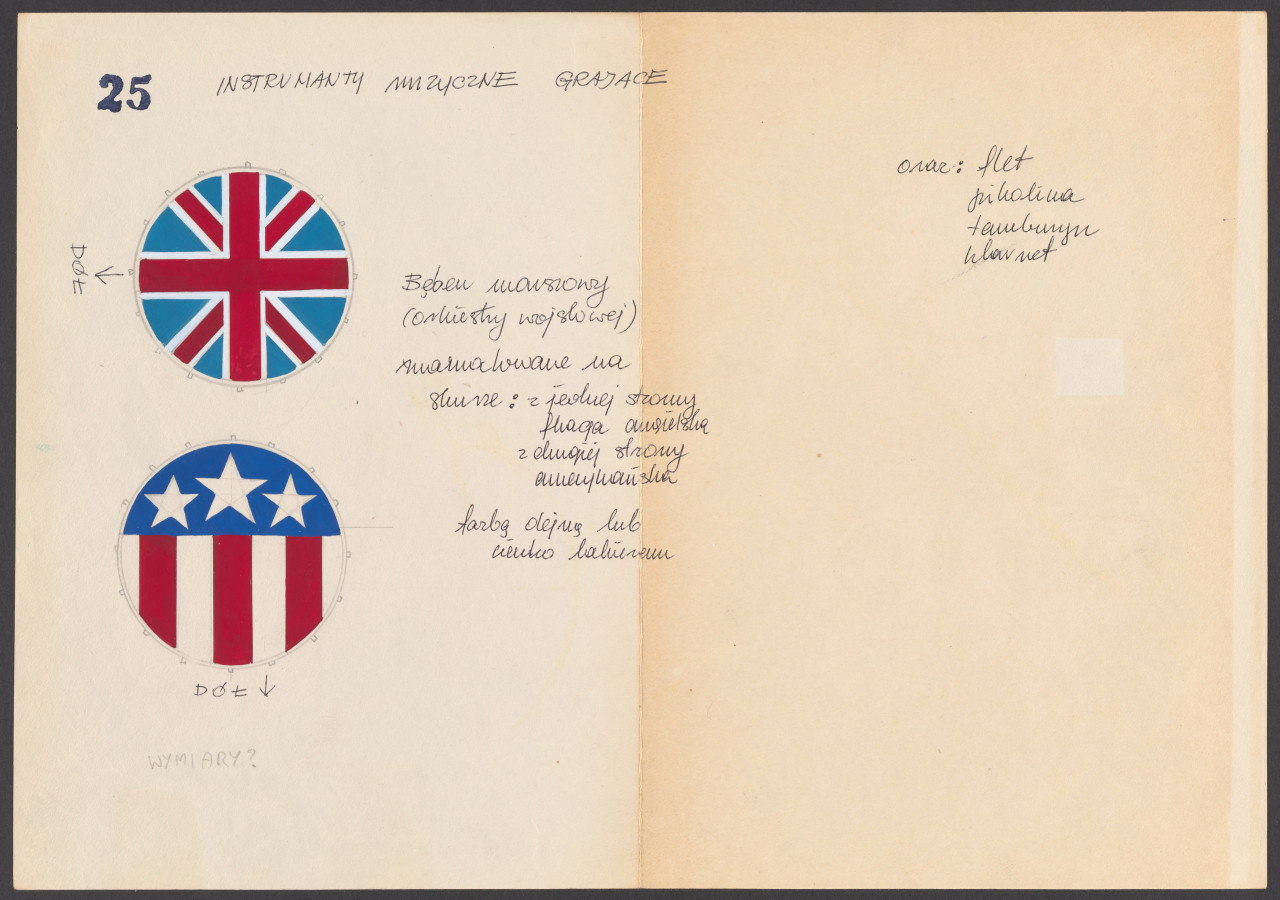 25
INSTRUMANTY MUZYCZNE GRAJACE
DÓŁ
Bęben marszowy
(orkiestry wojskowej)
namalowane na
skórze : z jednej strony
flaga angielska
z drugiej strony
amerykańska
farbą olejną lub
cienko lakierem
DÓŁ
WYMIARY?
oraz : flet
pikolina
tamburyn
klarnet